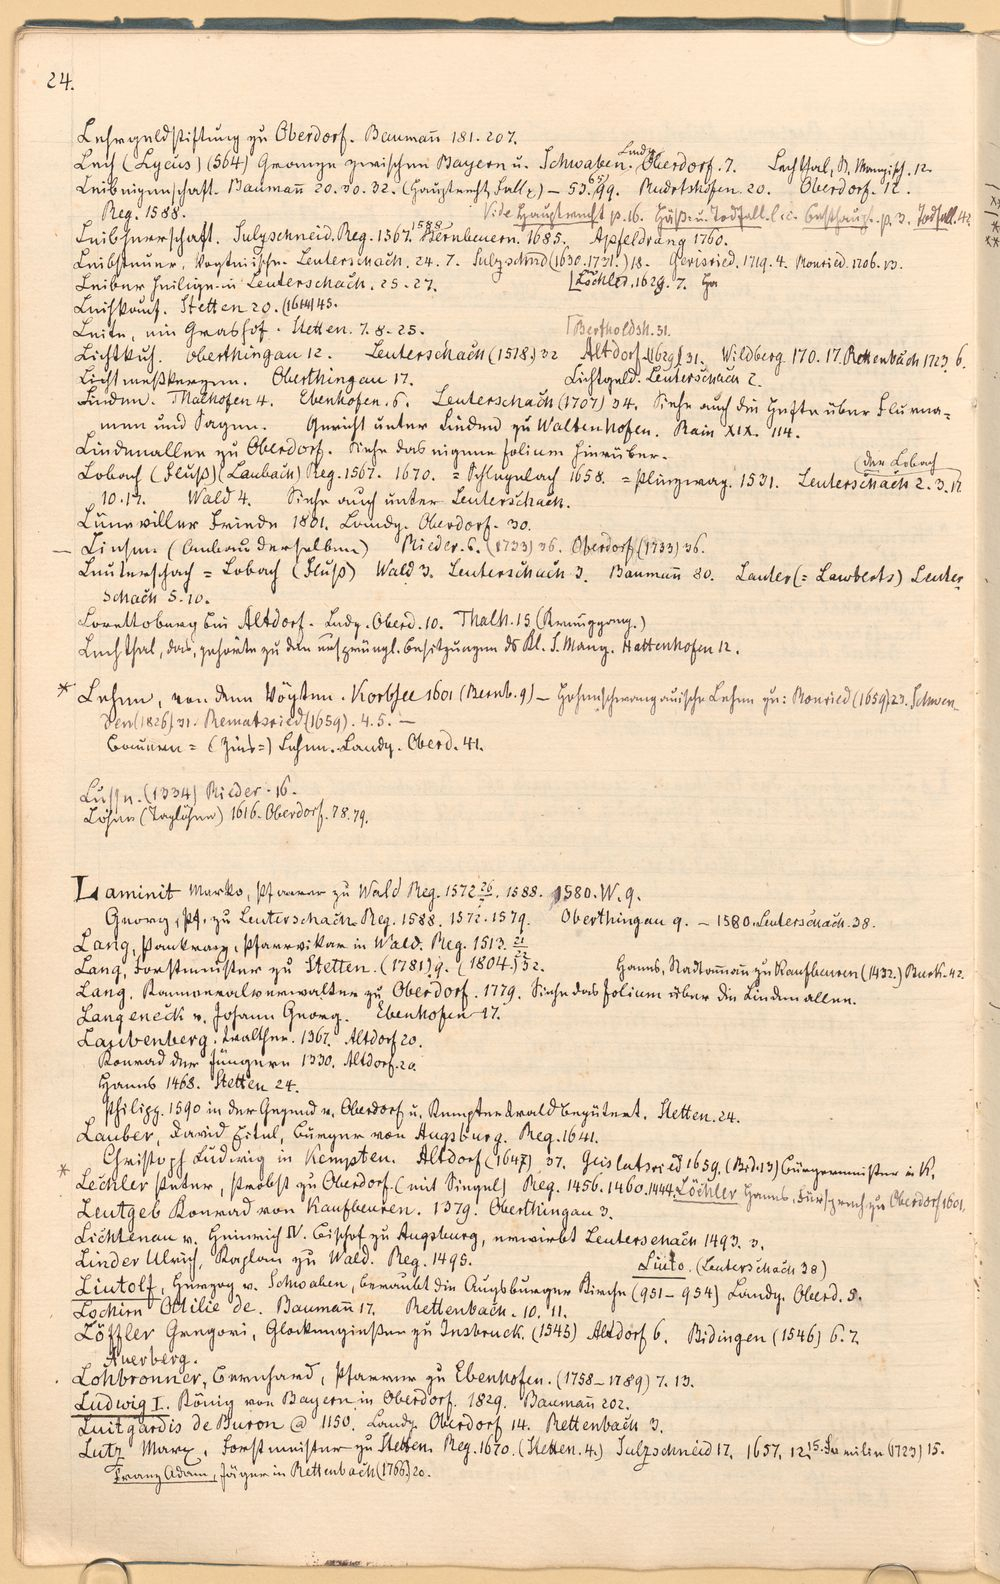 24.
Lehrgeldstiftung zu Oberdorf. Baumañ 181. 207.
Lech (Lycus) (564) Grenze zwischen Bayern u. Schwaben. Landg. Oberdorf. 7. Lechthal, B. 12.
Leibeigenschaft. Baumañ 20. 30. 32. (Hauptrecht, Fall) – 53. 65. 99. Rudrtshofen. 20. Oberdorf. 12.
Reg. 1588. Vide Hauptrecht p. 16. p. 3. Todfall. 42
Leibherrschaft. Sulzschneid. Reg. 1367. 1588 Bernbeuern. 1685. Apfeldrang 1760.
Leibsteuer, Vogteiische. Leuterschach. 24. 7. Sulzschnd (1630. 1731.) 18. Gerisried. 1719. 4. Monried. 1706. 13.
Leiber Heilige in Leuterschach. 25. 27. Löchler, 1629. 7.
Leihkauf. Stetten 20. (1614) 45.
Leite, ein Grashof. Stetten. 7. 8. 25. Bertholdsh. 31.
Lichtkuh. Oberthingau 12. Leuterschach (1518.) 32 Altdorf (1629) 31. Wildberg 170. 17. Rettenbach 1723. 6.
Lichtmeßkerzen. Oberthingau 17. Lichtgeld. Leuterschach 2.
Linden. Thalhofen 4. Ebenhofen. 6. Leuterschach (1707) 34. Siehe auch die Hefte über Flurna-
men und Sagen. Gericht unter Linden zu Waltenhofen. Rain XIX. 114.
Lindenallee zu Oberdorf. Siehe das eigene Folium hierüber.
Lobach (Fluß) (Laubach) Reg. 1567. 1670. = Schlegelach 1658. = 1531. (der Lobach Leuterschach 2. 3. 17
10. 17. Wald 4. Siehe auch unter Leuterschach.
Lüneviller Friede 1801. Landg. Oberdorf. 30.
— Linsen (Anbau derselben) Rieder. 6. (1733) 36. Oberdorf (1733) 36.
Leuterschach = Lobach (Fluß) Wald 3. Leuterschach 3. Baumañ 80. Lauter (= Lawberts) Leuter-
schach 5. 10.
Lorettoberg bei Altdorf. Landg. Oberd. 10. Thalh. 15 (Kreuzgang.)
Lechthal, das, gehörte zu den ursprüngl. Besitzungen ds Kl. S. Mang. Hattenhofen 12.
* Lehen, von den Vögten. Korbsee 1601 (Bernb. 9) – Hohenschwangauische Lehen zu: Monried (1659) 23. Schwen-
den (1826) 31. Rematsried (1659). 4. 5. —
Bauern = (Zins =) Lehen. Landg. Oberd. 41.
(1334) Rieder. 16.
Löhne (Taglöhne) 1616. Oberdorf. 78. 79.
Laminit Marko, Pfarrer zu Wald Reg. 1572 1588. 1580. W. 9.
Georg, Pf. zu Leuterschach Reg. 1588. 1572. 1579. Oberthingau 9. – 1580. Leuterschach. 38.
Lang, Pankraz, Pfarrvikar in Wald. Reg. 1513.
Lang, Forstmeister zu Stetten. (1781) 9. (1804.) 32. Hanns, Stadtamañ zu Kaufbeuren (1432.) Burk. 42.
Lang. Kameralverwalter zu Oberdorf. 1779. Siehe das Folium über die Lindenallee.
Langeneck v. Johann Georg. Ebenhofen 17.
Laubenberg. Walther. 1367. Altdorf 20.
Konrad der Jüngere 1330. Altdorf. 20.
Hanns 1468. Stetten 24.
Philipp. 1590 in der Gegend v. Oberdorf u. Kempterwald begütert. Stetten. 24.
Lauber, David Eitel, Bürger von Augsburg. Reg. 1641.
Christoph Ludwig in Kempten. Altdorf (1647) 37. Geislatsried 1659. (Bid. 13) Bürgermeister in K.
* Lechler Peter, Probst zu Oberdorf (mit Siegel) Reg. 1456. 1460. 1444. Löchler Hanns, Fürsprech zu Oberdorf 1601.
Leutgeb Konrad von Kaufbeuren. 1379. Oberthingau 3.
Lichtenau v. Heinrich IV. Bischof zu Augsburg, erwirbt Leuterschach 1493. 3.
Linder Ulrich, Kaplan zu Wald. Reg. 1495. Liuto. (Leuterschach 38)
Liutolf, Herzog v. Schwaben, beraubt die Augsburger Kirche (951–954) Landg. Oberd. 5.
Lschirn Ottilie de. Baumañ 17. Rettenbach. 10. 11.
Löffler Gregori, Glockengießer zu Insbruck. (1545) Altdorf 6. Bidingen (1546) 6. 7.
Auerberg.
Lohbronner, Bernhard, Pfarrer zu Ebenhofen. (1758–1789) 7. 13.
Ludwig I. König von Bayern in Oberdorf. 1829. Baumañ 202.
Luitgardis de Buron @ 1150. Landg. Oberdorf 14. Rettenbach 3.
Lutz Marx, Forstmeister zu Stetten. Reg. 1670. (Stetten. 4.) Sulzschneid 17. 1657. 12. 15. Familie (1723) 15.
Franz Adam, Jäger in Rettenbach (1766.) 20.